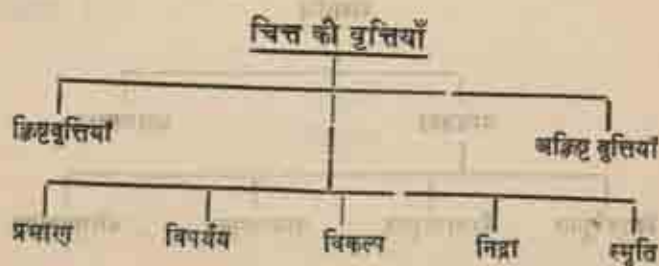 चित्त की वृत्तियाँ
क्लिष्टवृत्तियाँ
अक्लिष्ट वृत्तियाँ
प्रमाण विपर्यय विकल्प निद्रा स्मृति